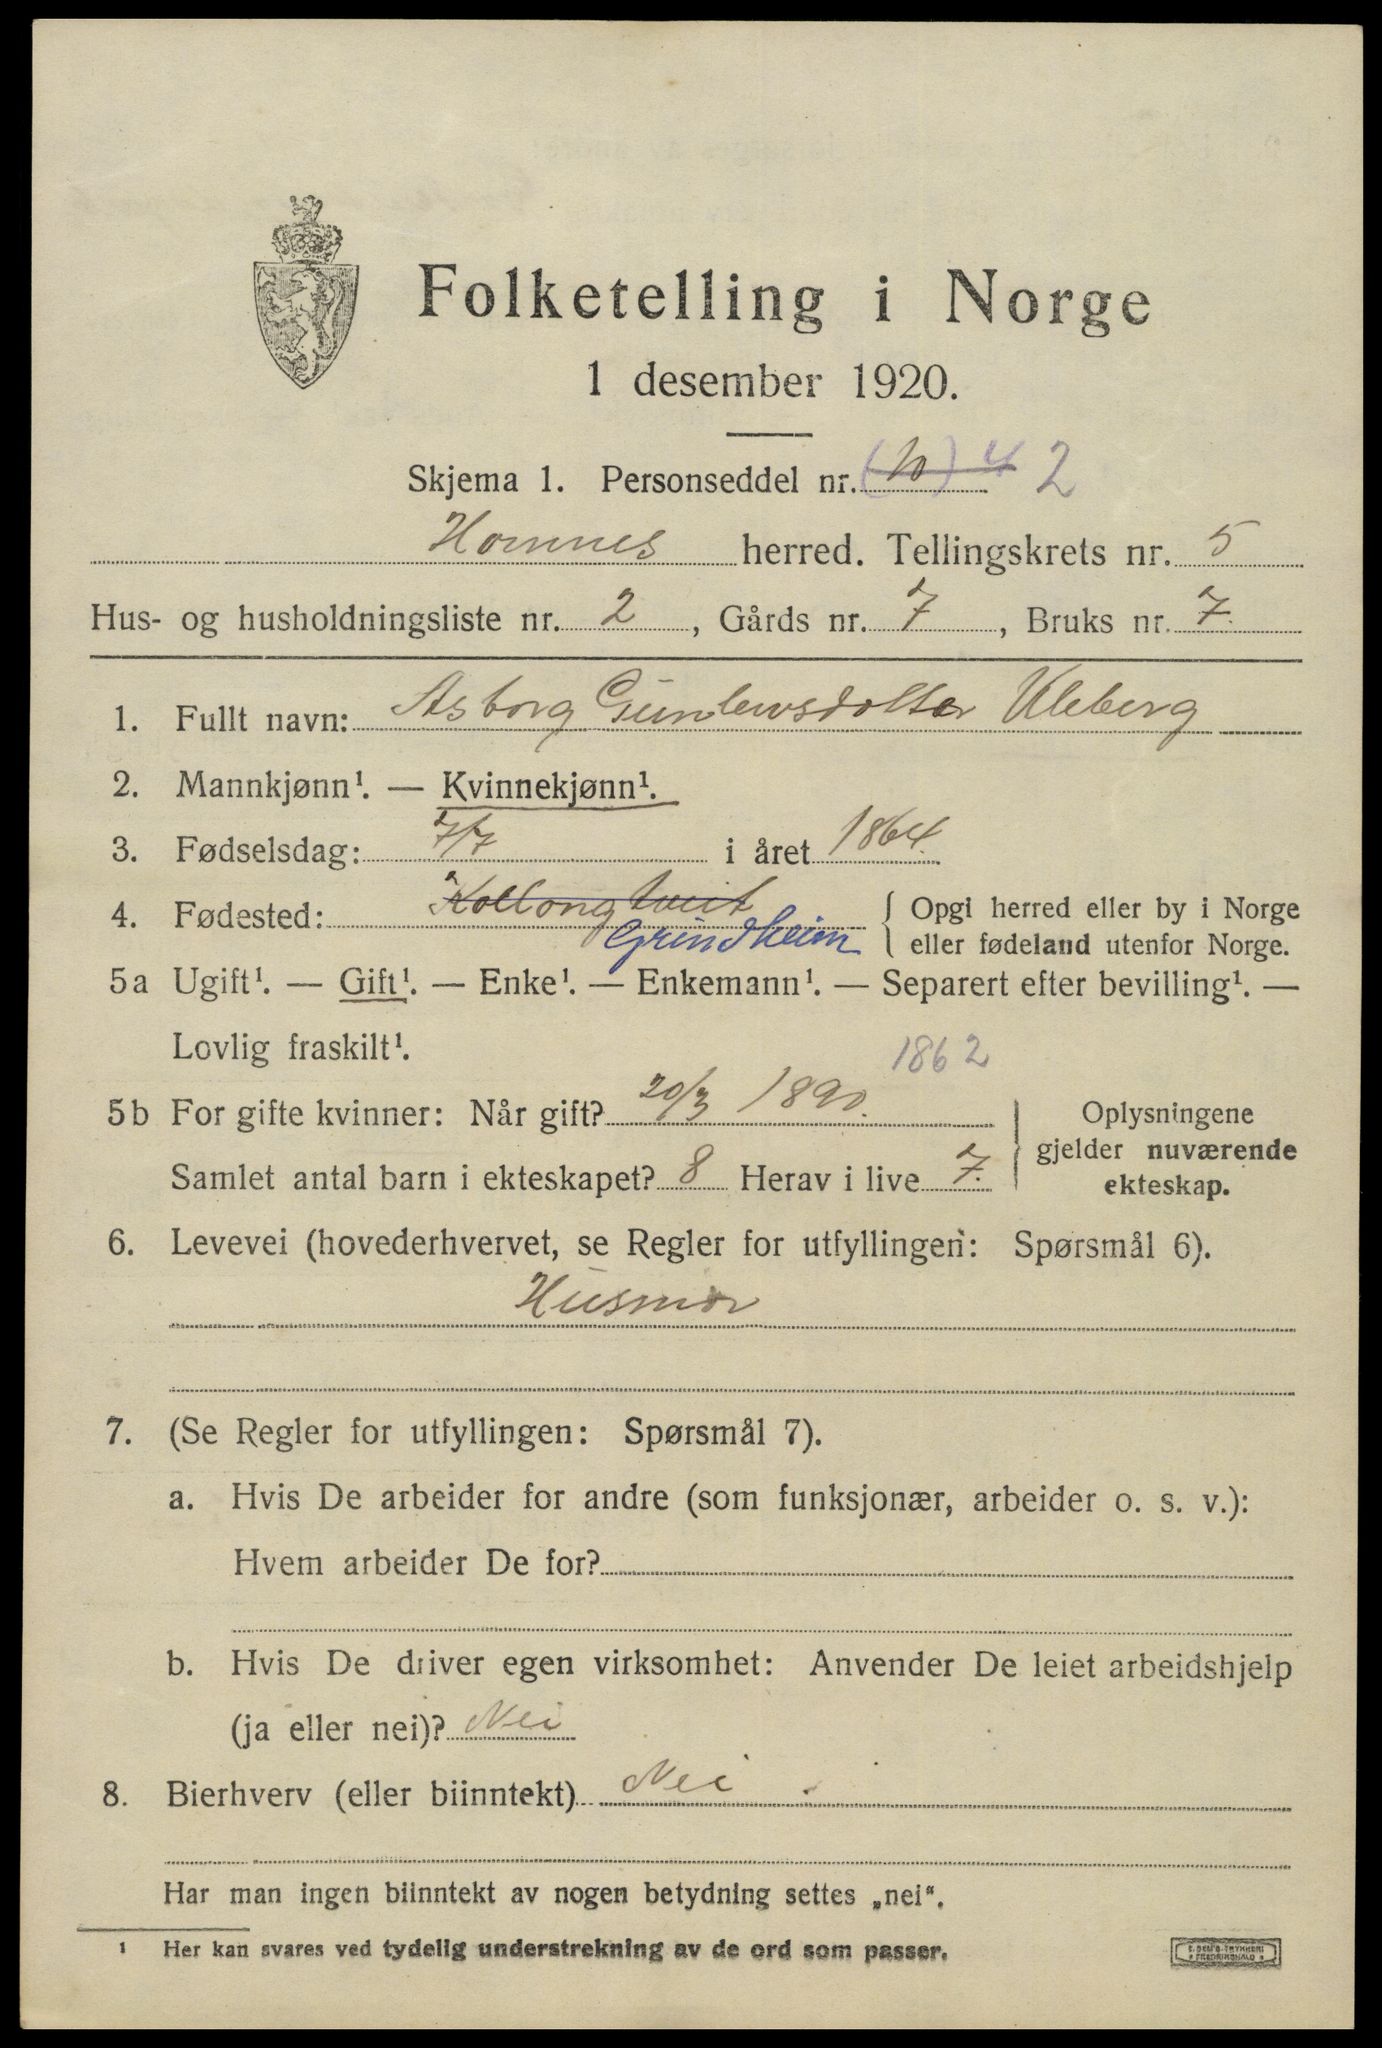 Folketelling i Norge
1 desember 1920.
Skjema 1. Personseddel nr. (10) 4 2
Hornnes herred. Tellingskrets nr. 5
Hus- og husholdningsliste nr. 2, Gårds nr. 7, Bruks nr. 7.
1. Fullt navn: Asborg Gunlevsdotter Uleberg
2. Mannkjønn¹. — Kvinnekjønn¹.
3. Fødselsdag: 7/7 i året 1864.
4. Fødested: { Opgi herred eller by i Norge
Grindheim eller fødeland utenfor Norge.
5a Ugift¹. — Gift¹. — Enke¹. — Enkemann¹. — Separert efter bevilling¹. —
Lovlig fraskilt¹. 1862
5b For gifte kvinner: Når gift? 20/3 1890. Oplysningene
gjelder nuværende
Samlet antal barn i ekteskapet? 8 Herav i live 7. ekteskap.
6. Levevei (hovederhvervet, se Regler for utfyllingen: Spørsmål 6).
Husmor
7. (Se Regler for utfyllingen: Spørsmål 7).
a. Hvis De arbeider for andre (som funksjonær, arbeider o. s. v.):
Hvem arbeider De for?
b. Hvis De driver egen virksomhet: Anvender De leiet arbeidshjelp
(ja eller nei)? Nei
8. Bierhverv (eller biinntekt) Nei.
Har man ingen biinntekt av nogen betydning settes „nei“.
¹ Her kan svares ved tydelig understrekning av de ord som passer.